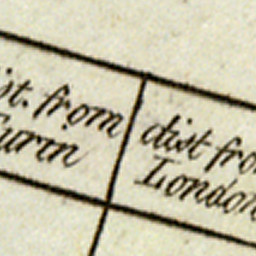 st. from
Turin
dist fro
London